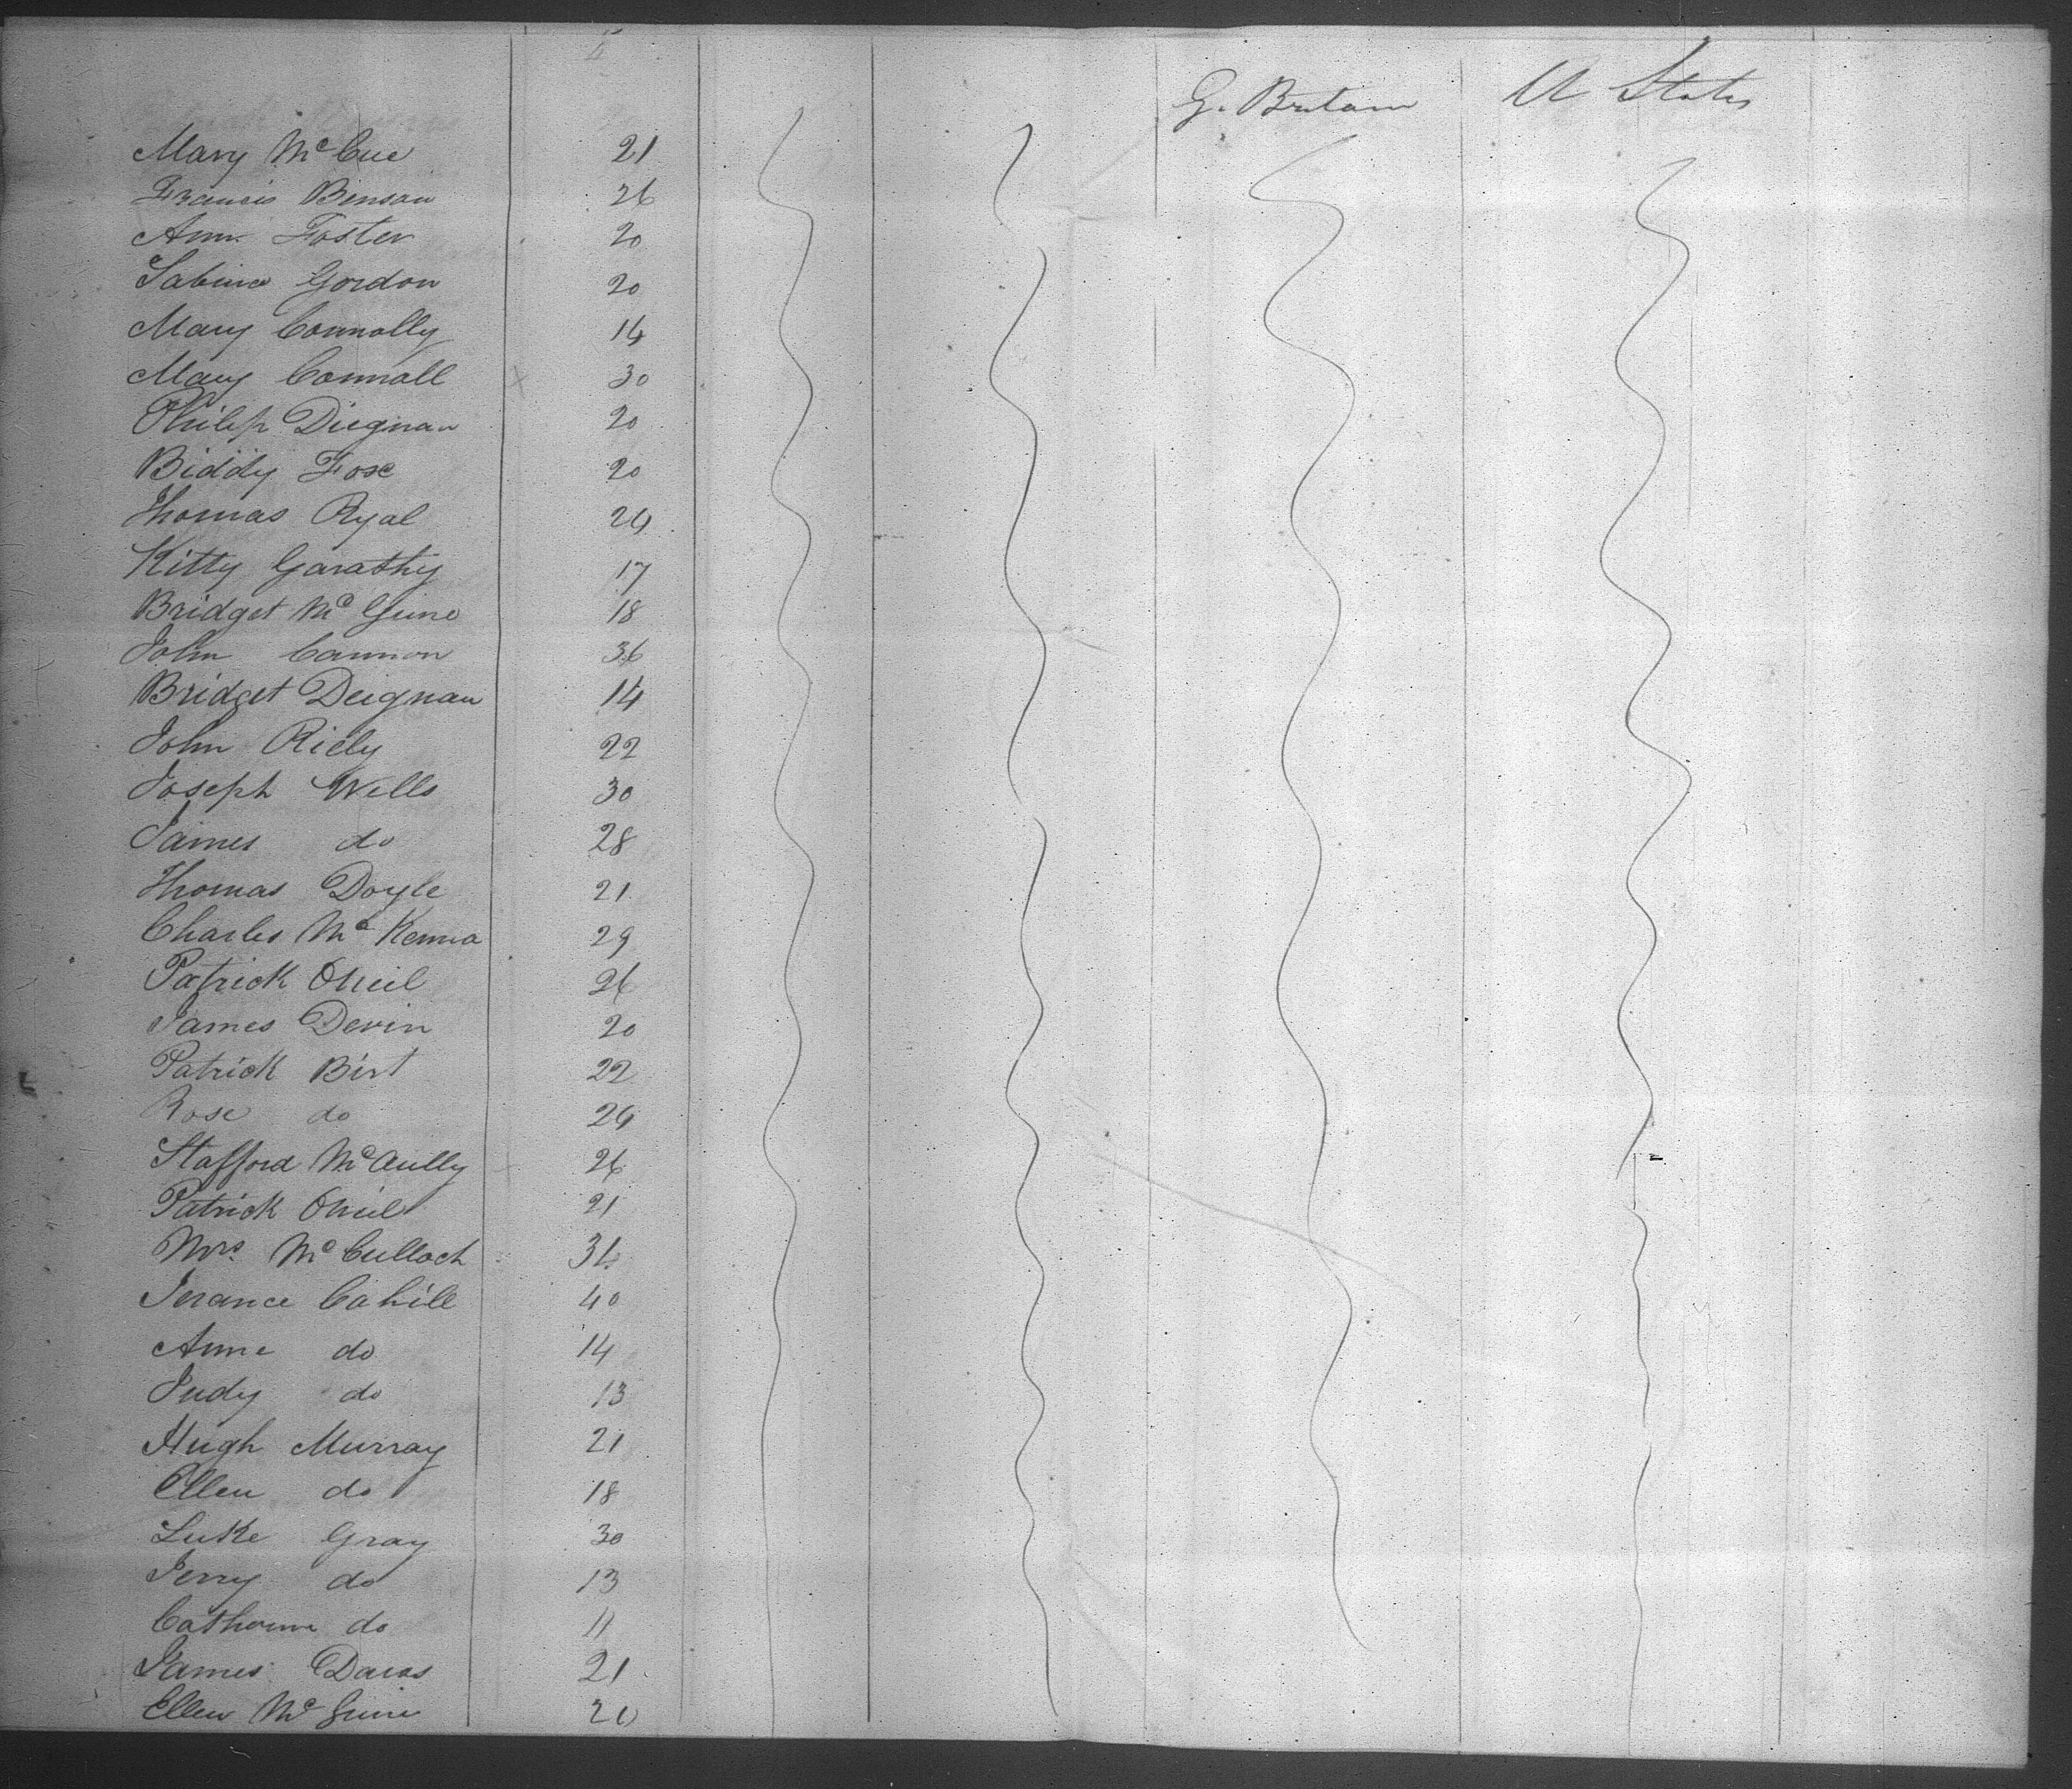 G. Britain U States
Mary McCue 21
Francis Benson 26
Ann Foster 20
Sabina Gordon 20
Mary Connolly 14
Mary Connoll 30
Philip Diegnan 20
Biddy Fox 20
Thomas Ryal 24
Kitty Garathy 17
Bridget Mc Guine 18
John Cannon 36
Bridget Deignan 14
John Riely 22
Joseph Wells 30
James do 28
Thomas Doyle 21
Charles McKenna 29
Patrick Oneil 26
James Devin 20
Patrick Birt 22
Rose do 24
Stafford McAully 26
Patrick Oneil 21
Mrs. McCulloch
Terance Cahill 40
Anne do 14
Judy do 13
Hugh Murray 21
Ellen do 18
Luke Gray 30
Jerry do 13
Catherine do 11
James 21
Ellen McGuire 20